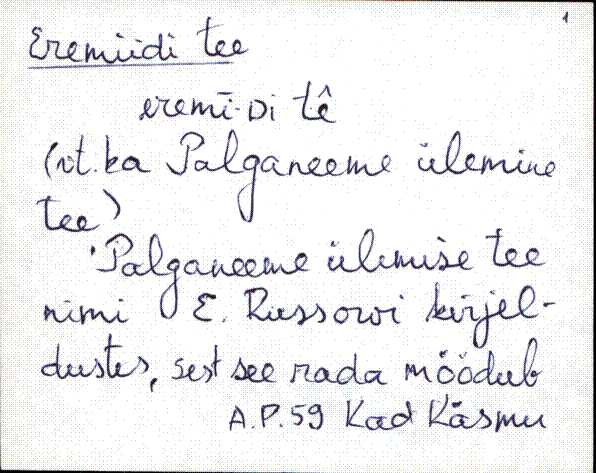 1
Eremiidi tee
eremī·Di tē̂
(vt. ka Palganeeme ülemine
tee)
Palganeeme ülemise tee
nimi E. Russowi kirjel-
dustes, sest see rada möödub
A.P. 59 Kad Käsmu